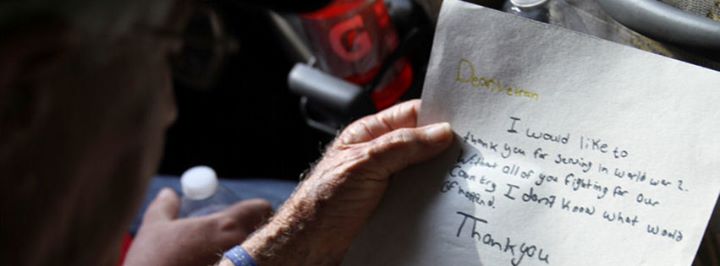 G
Dear Veteran
I would like to
thank you for serving in world war 2.
Without all of you fighting for our
Country I don't know what would
of happend.
Thank you